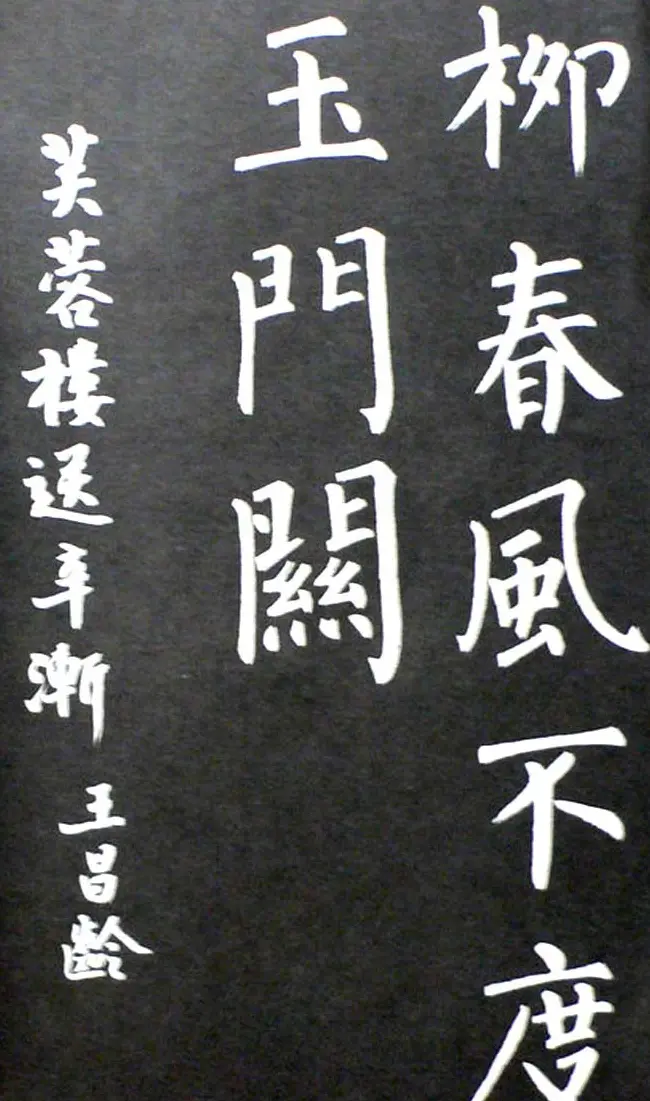 柳春風不度
玉門關
芙蓉樓送辛漸 王昌齡